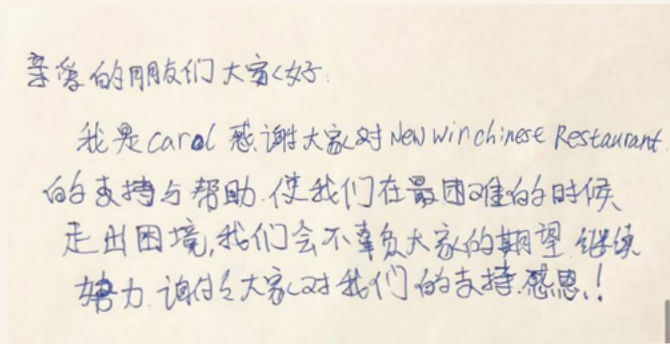 亲爱的朋友们大家好:
我是carol 感谢大家对New win chinese Restaurant.
的支持与帮助.使我们在最困难的时候
走出困境,我们会不辜负大家的期望.继续
努力.谢谢大家对我们的支持.感恩.!